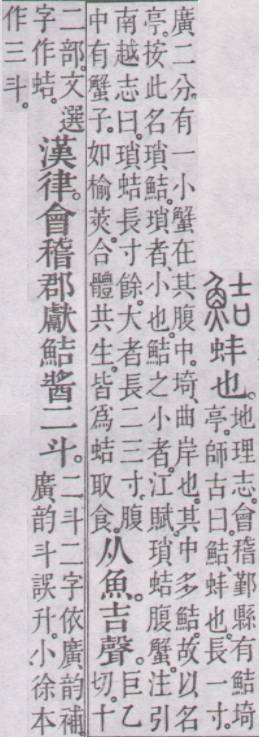 鮚蚌也。地理志。會稽鄞縣有鮚埼
亭。師古曰。鮚、蚌也。長一寸。
廣二分。有一小蟹在其腹中。埼、曲岸也。其中多鮚。故以名
亭。按此名瑣鮚。瑣者、小也。鮚之小者。江賦。瑣蛣腹蟹。注引
南越志曰。瑣蛣長寸餘。大者長二三寸。腹
中有蟹子。如榆莢。合體共生。皆爲蛣取食。
从魚。吉聲。巨乙
切。十
二部。文選
字作蛣。
漢律。會稽郡獻鮚醬二斗。二斗二字依廣韵補
廣韵斗誤升。小徐本
作三斗。